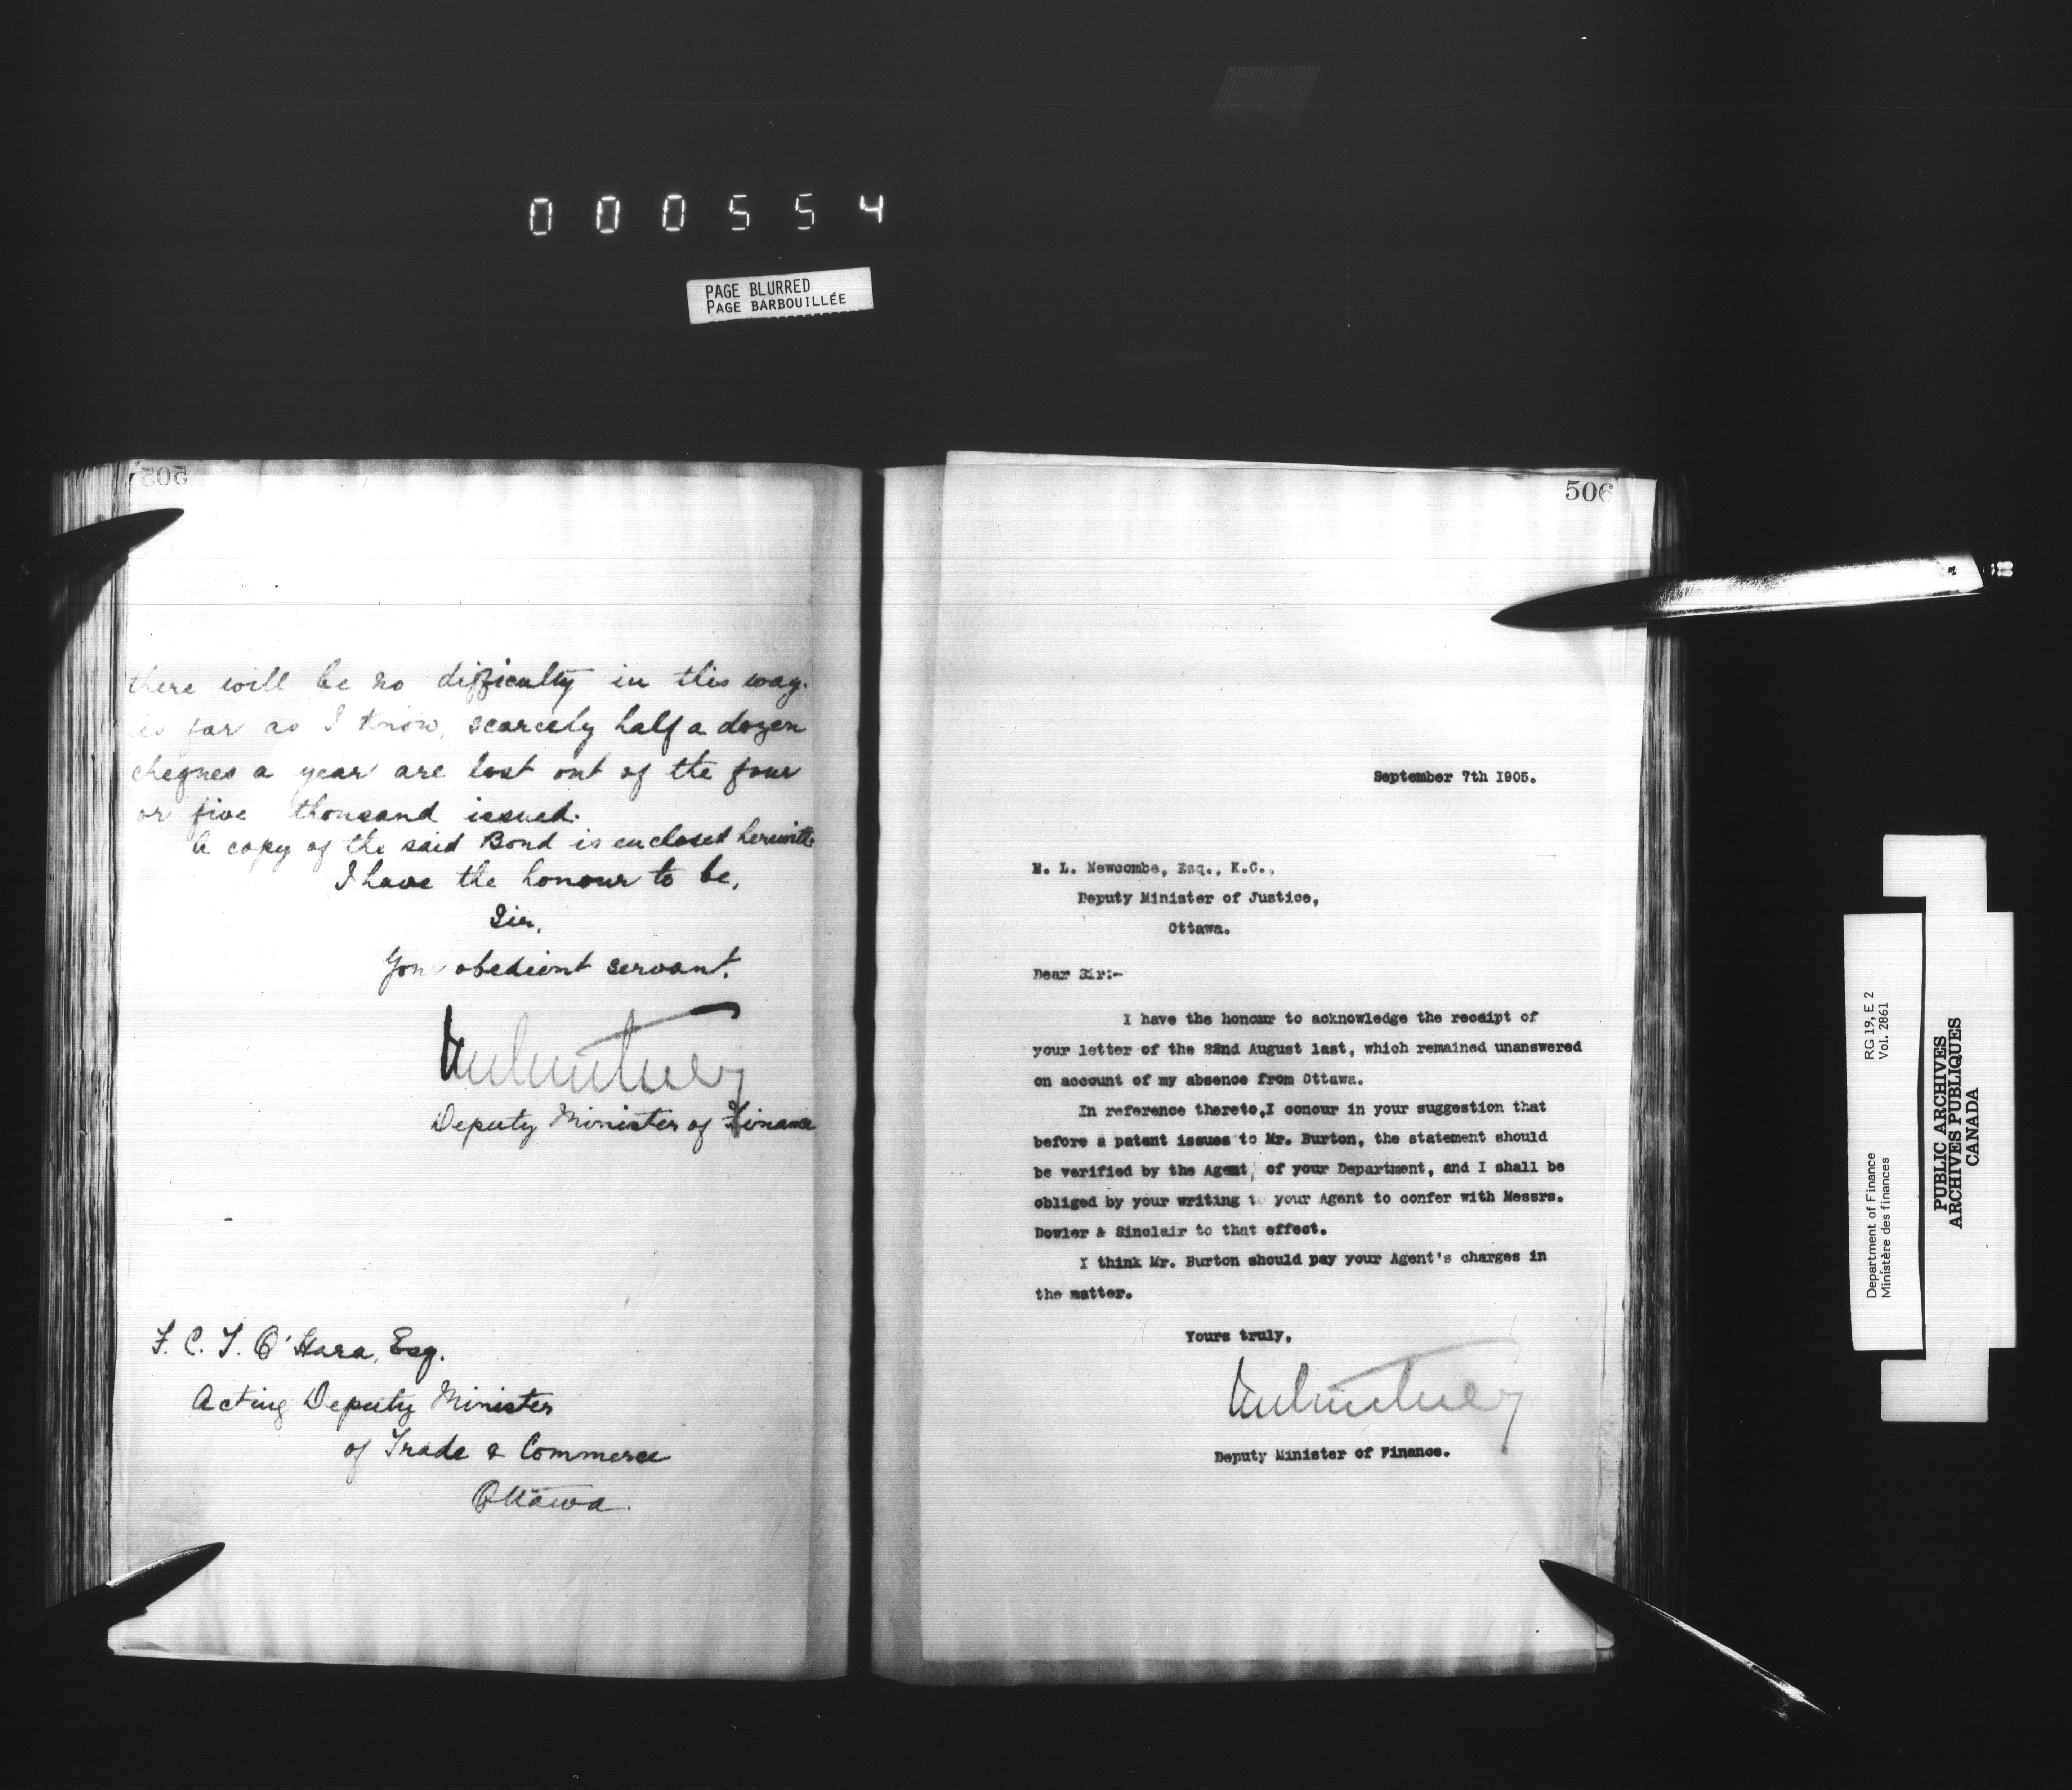 000554
PAGE BLURRED
PAGE BARBOUILLÉE
505
there will be no difficulty in this way.
As far as I know, scarcely half a dozen
cheques a year are lost out of the four
or five thousand issued.
A copy of the said Bond is enclosed herewith
I have the honour to be,
Sir,
Your obedient servant,
Deputy Minister of Finance
F. C. T. O'Hara, Esq.
Acting Deputy Minister
of Trade & Commerce
Ottawa.
506
September 7th 1905.
E. L. Newcombe, Esq., K.C.,
Deputy Minister of Justice,
Ottawa.
Dear Sir:-
I have the honour to acknowledge the receipt of
your letter of the 22nd August last, which remained unanswered
on account of my absence from Ottawa.
In reference thereto,I concur in your suggestion that
before a patent issues to Mr. Burton, the statement should
be verified by the Agent, of your Department, and I shall be
obliged by your writing to your Agent to confer with Messrs.
Dowler & Sinclair to that effect.
I think Mr. Burton should pay your Agent's charges in
the matter.
Yours truly,
Deputy Minister of Finance.
RG 19, E 2
Vol. 2861
Department of Finance
Ministère des finances
PUBLIC ARCHIVES
ARCHIVES PUBLIQUES
CANADA